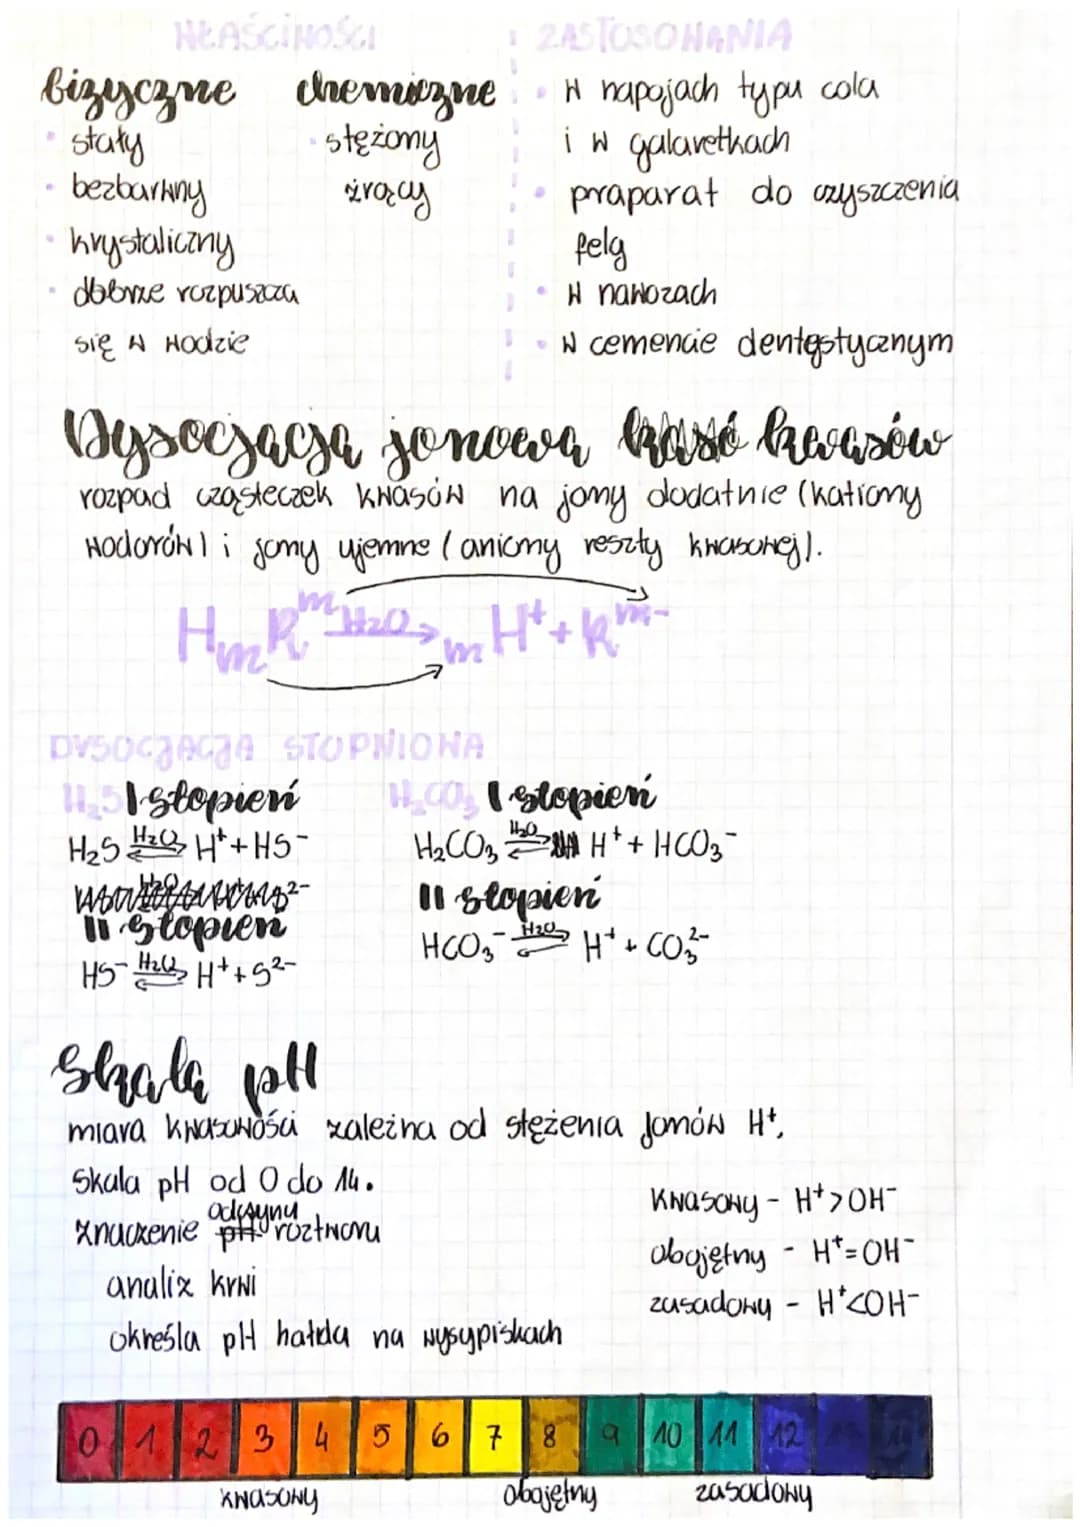 WŁAŚCIWOŚCI
fizyczne
chemiczne
• stały
• bezbarwny
• krystaliczny
• dobrze rozpuszcza
się w wodzie
• stężony
żrący
ZASTOSOWANIA
• w napojach typu cola
i w galaretkach
• praparat do czyszczenia
felg
• w nawozach
• w cemencie dentęstycznym
Dysocjacja jonowa kwasów
rozpad cząsteczek kwasów na jony dodatnie (kationy
wodorów) i jony ujemne (aniony reszty kwasowej).
HₘRᵐ H₂O→ m H⁺ + Rᵐ⁻
DYSOCJACJA STOPNIOWA
H₂S I stopień
H₂S H₂O⇄ H⁺ + HS⁻
II stopień
HS⁻ H₂O⇄ H⁺ + S²⁻
H₂CO₃ I stopień
H₂CO₃ H₂O⇄ H⁺ + HCO₃⁻
II stopień
HCO₃⁻ H₂O⇄ H⁺ + CO₃²⁻
Skala pH
miara kwasowości zależna od stężenia jonów H⁺.
Skala pH od 0 do 14.
znaczenie odczynu roztworu
analiz krwi
określa pH hałda na wysypiskach
kwasowy - H⁺ > OH⁻
obojętny - H⁺ = OH⁻
zasadowy - H⁺ < OH⁻
0 1 2 3 4 5 6 7 8 9 10 11 12 13 14
kwasowy obojętny zasadowy